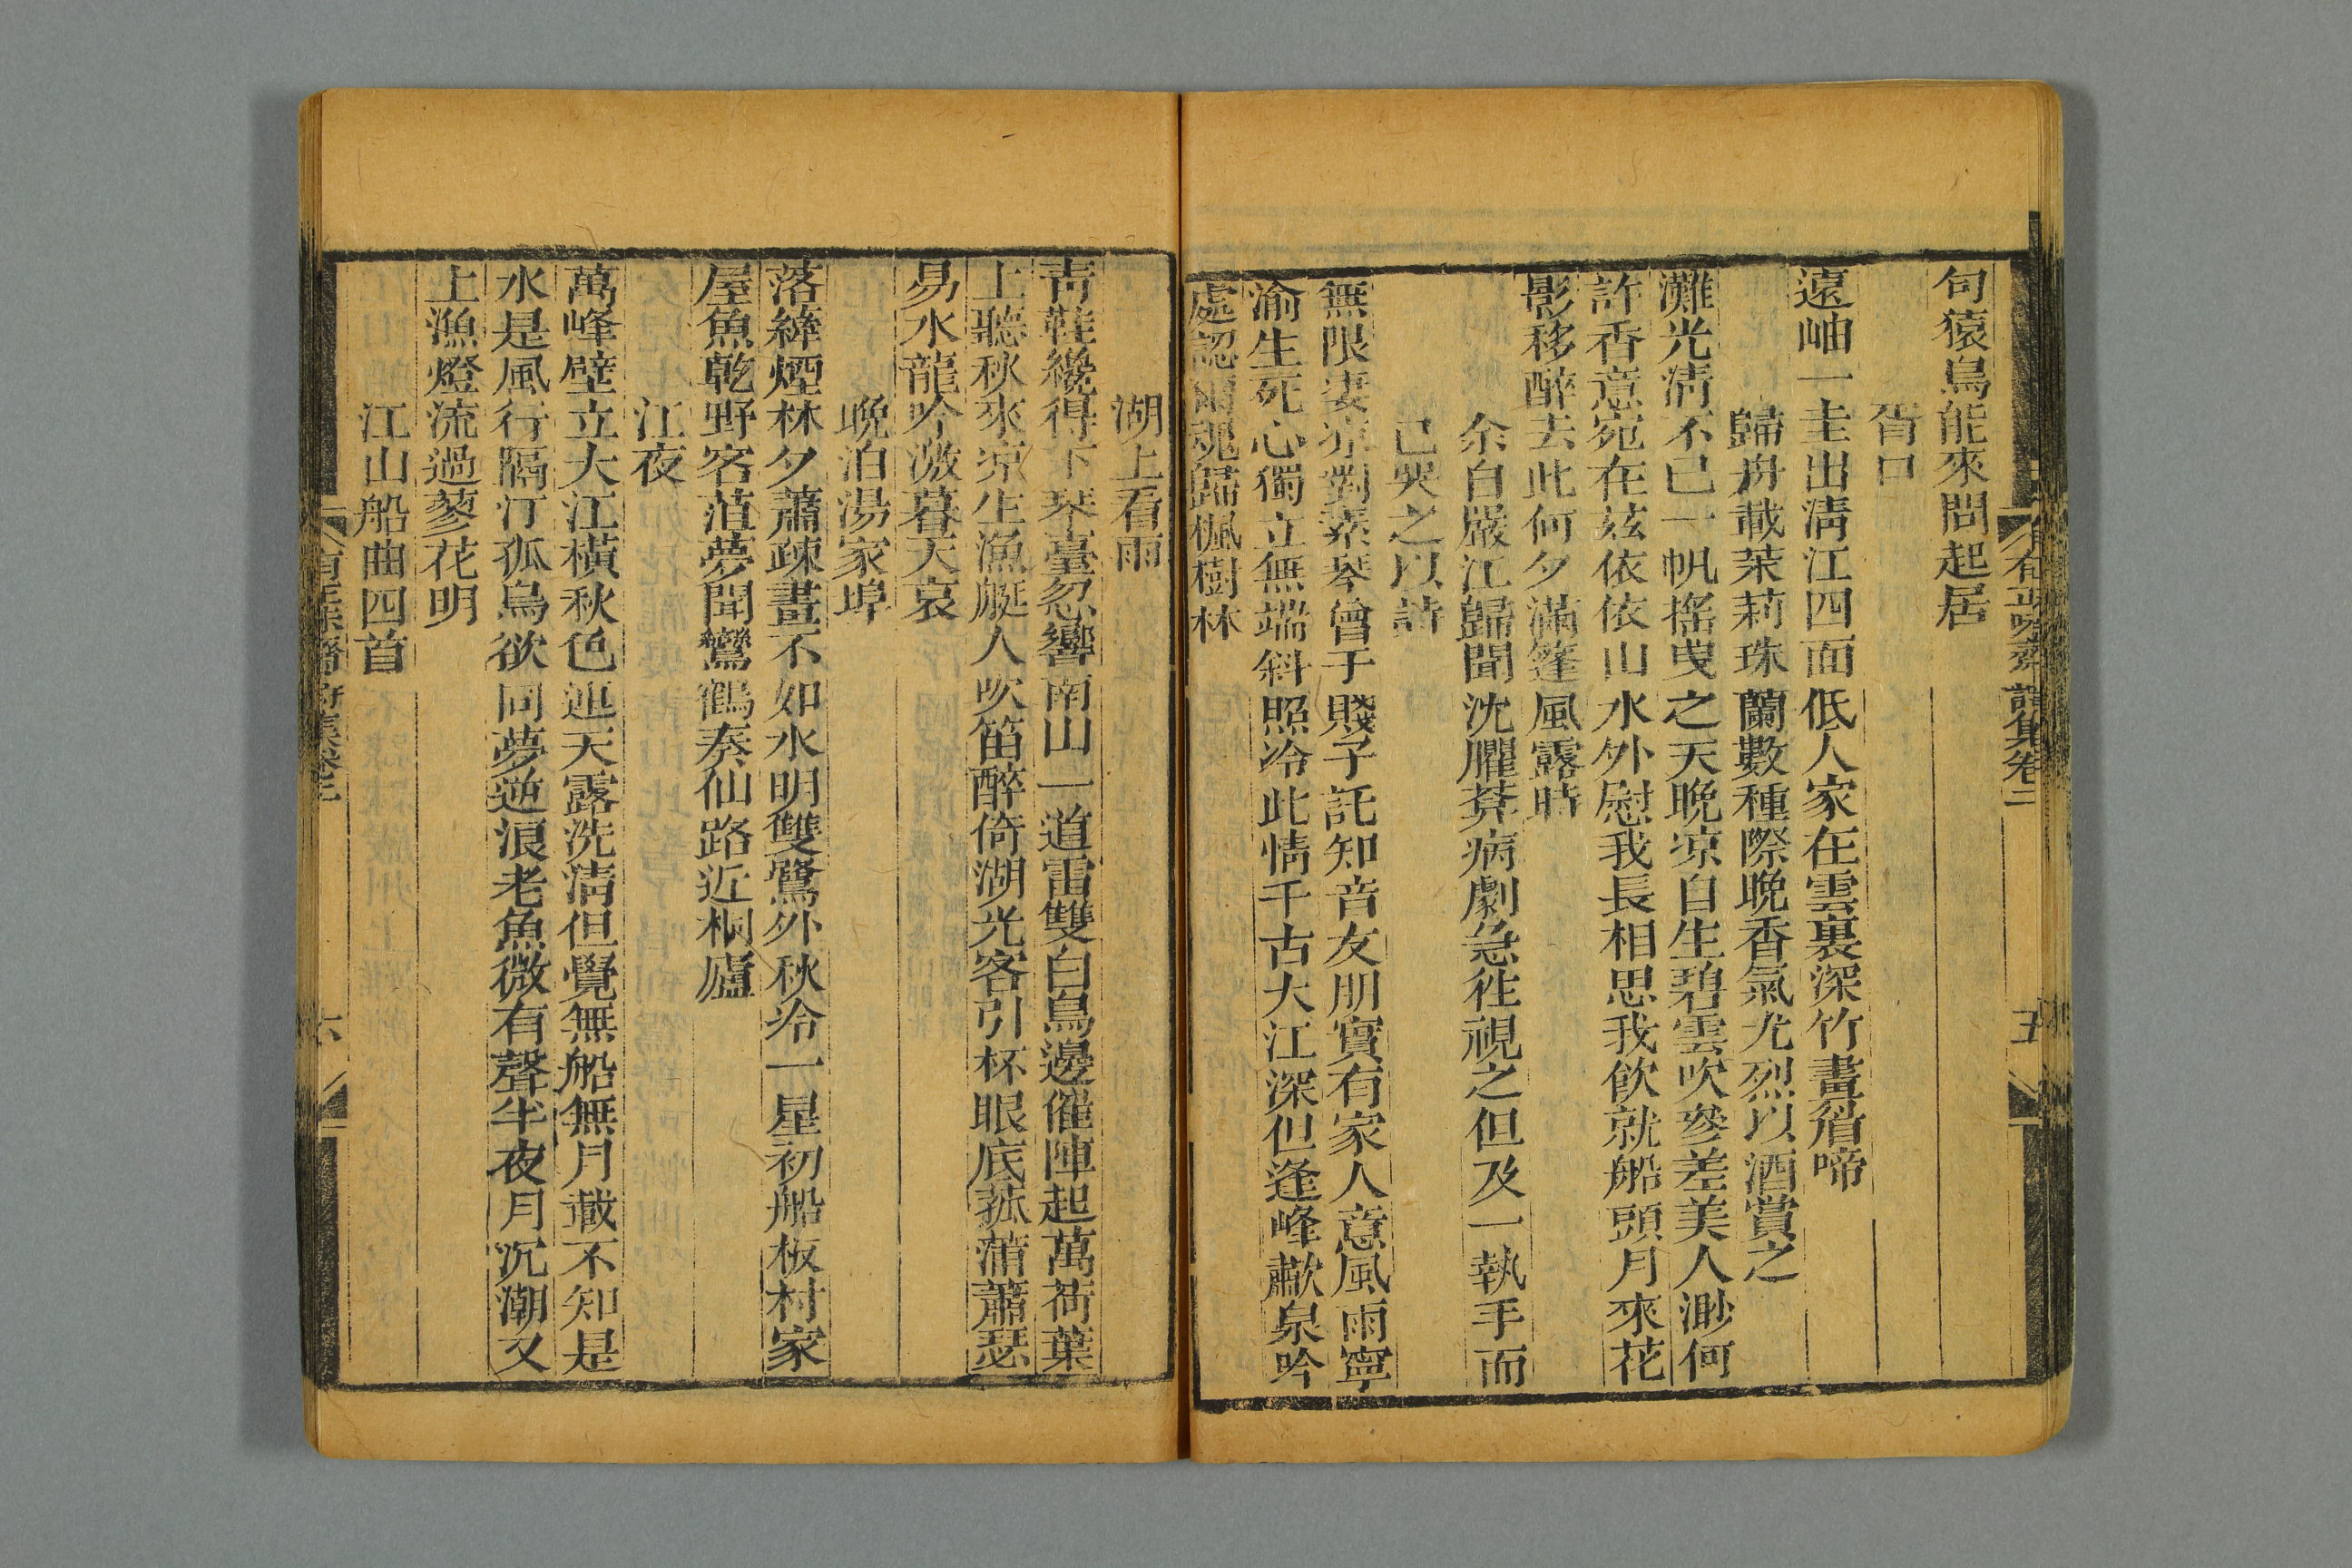 有正味齋詩集卷二
五
句猿鳥能來問起居
胥口
遠岫一圭出淸江四面低人家在雲裏深竹畫眉啼
歸舟載茉莉珠蘭數種際晚香氣尤烈以酒賞之
灘光淸不已一帆搖曵之天晚凉自生碧雲吹參差美人渺何
許香意宛在兹依依山水外慰我長相思我飮就船頭月來花
影移醉去此何夕滿篷風露時
余自嚴江歸聞沈臞莽病劇急往視之但及一執手而
已哭之以詩
無限凄凉對素琴曾于賤子託知音友朋實有家人意風雨寧
渝生死心獨立無端斜照冷此情千古大江深但逢峰歗泉吟
處認爾魂歸楓樹林
湖上看雨
靑鞋纔得下琴臺忽響南山一道雷雙白鳥邊催陣起萬荷葉
上聽秋來凉生漁艇人吹笛醉倚湖光客引杯眼底菰蒲蕭瑟
易水龍吟激暮天哀
晚泊湯家埠
落縴煙林夕蕭疎畫不如水明雙鷺外秋冷一星初船板村家
屋魚乾野客葅夢聞鸞鶴奏仙路近桐廬
江夜
萬峰壁立大江橫秋色連天露洗淸但覺無船無月載不知是
水是風行隔汀孤鳥欲同夢逆浪老魚微有聲半夜月沉潮又
上漁燈流過蓼花明
江山船曲四首
有正味齋詩集卷二
六